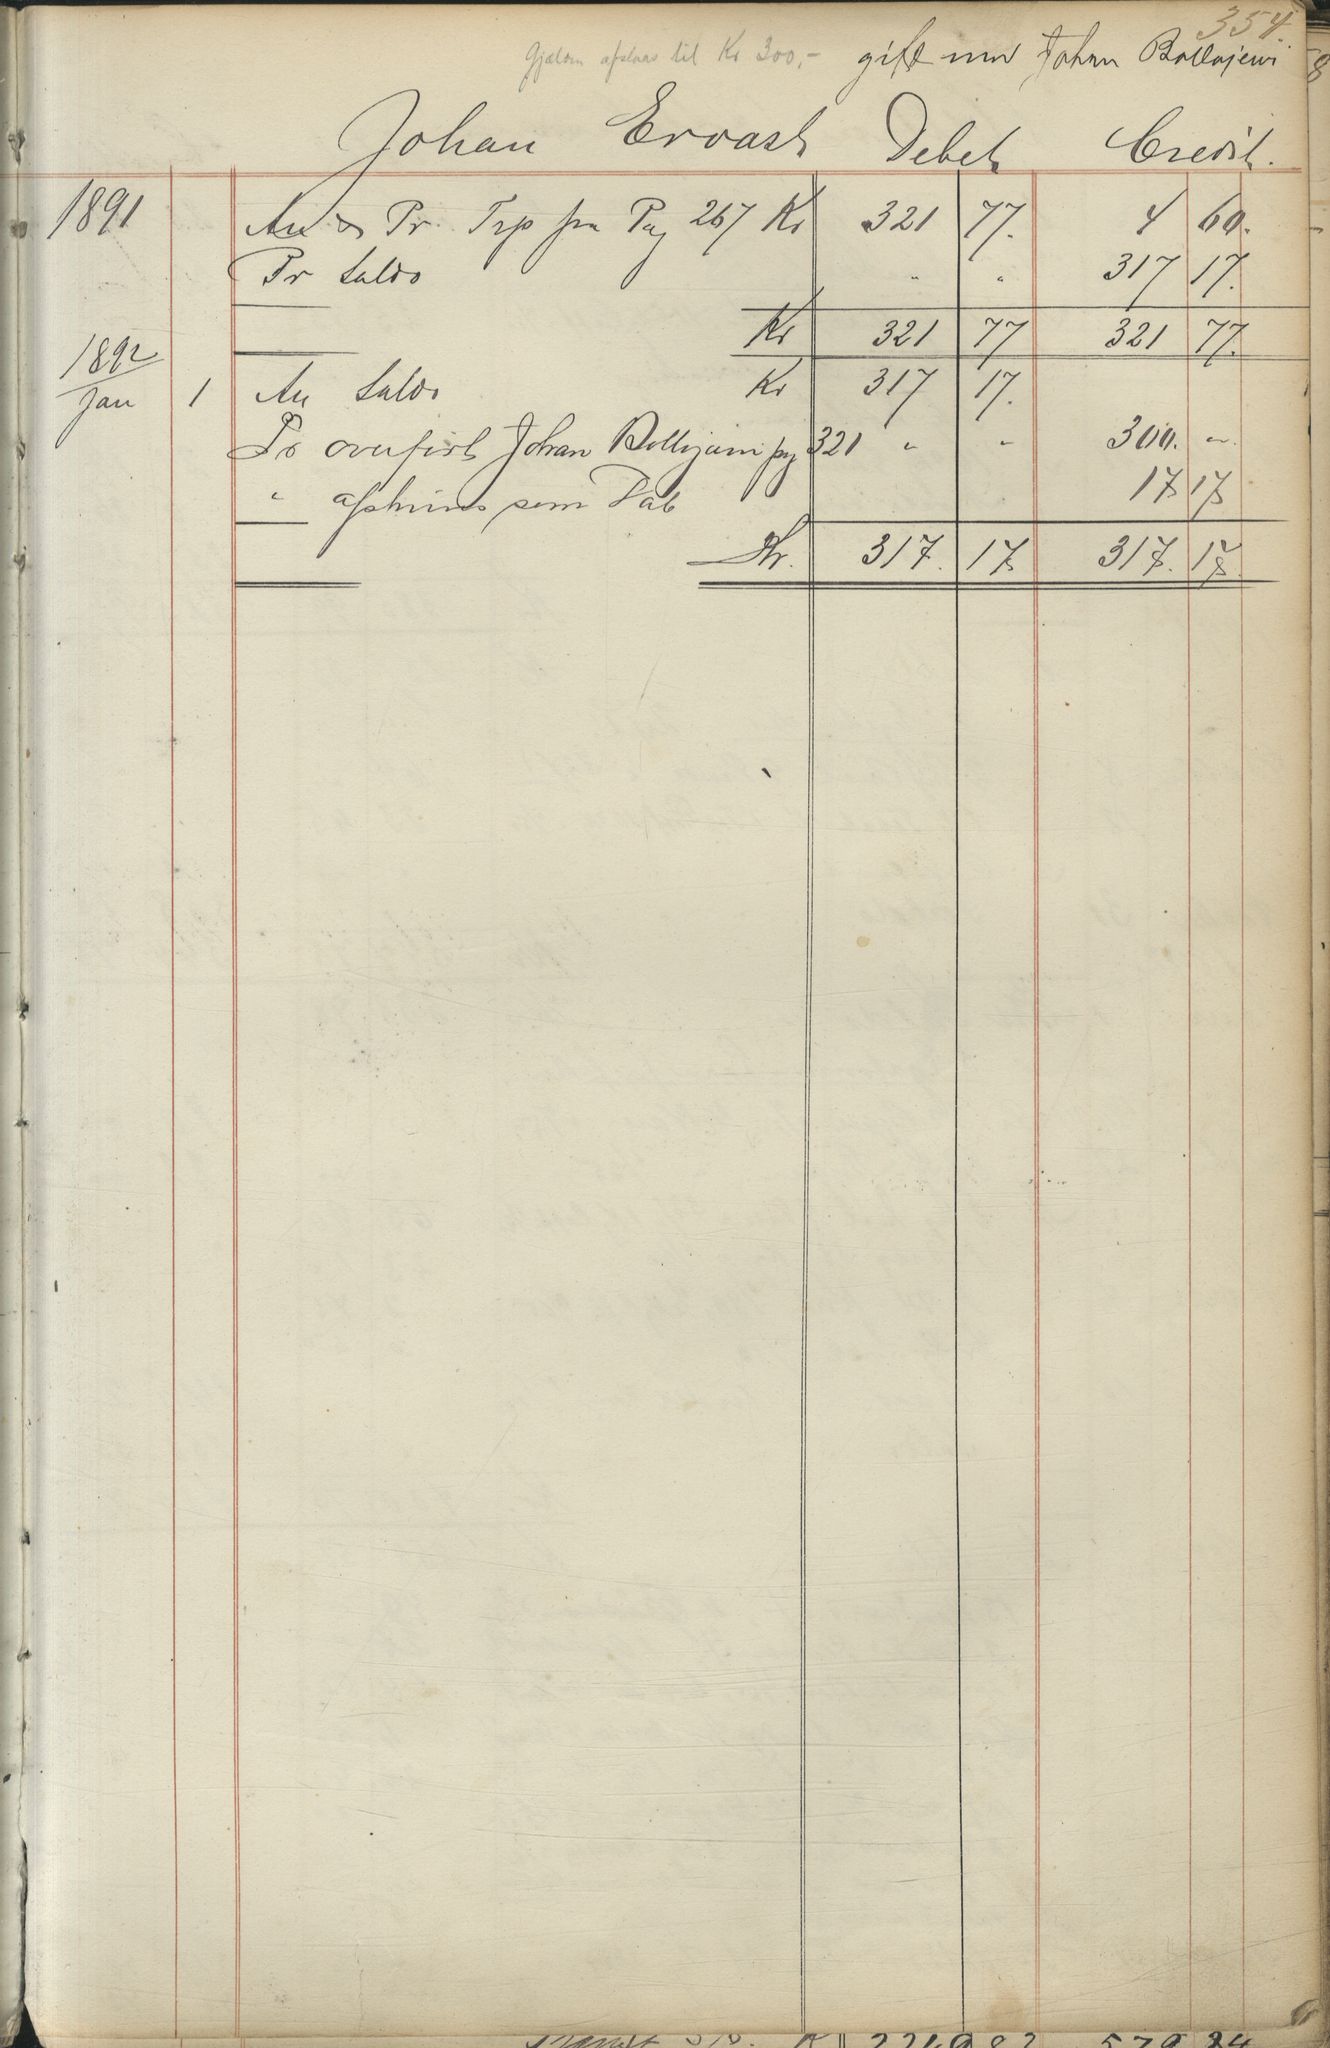 354
Gjælden afslaaes til Kr 300,- gift med Johan Bollojewi
Johan Ervast Debet Credit.
1891 An & Pr. Trp fra Pag 267 Kr 321 77. 4 60.
Pr Saldo " " 317 17.
Kr 321 77 321 77.
1892
Jan 1 An Saldo Kr 317 17.
Pr overført Johan pg 321 " " 300. "
" afskrives som Tab 17 17
Kr. 317. 17 317. 17.